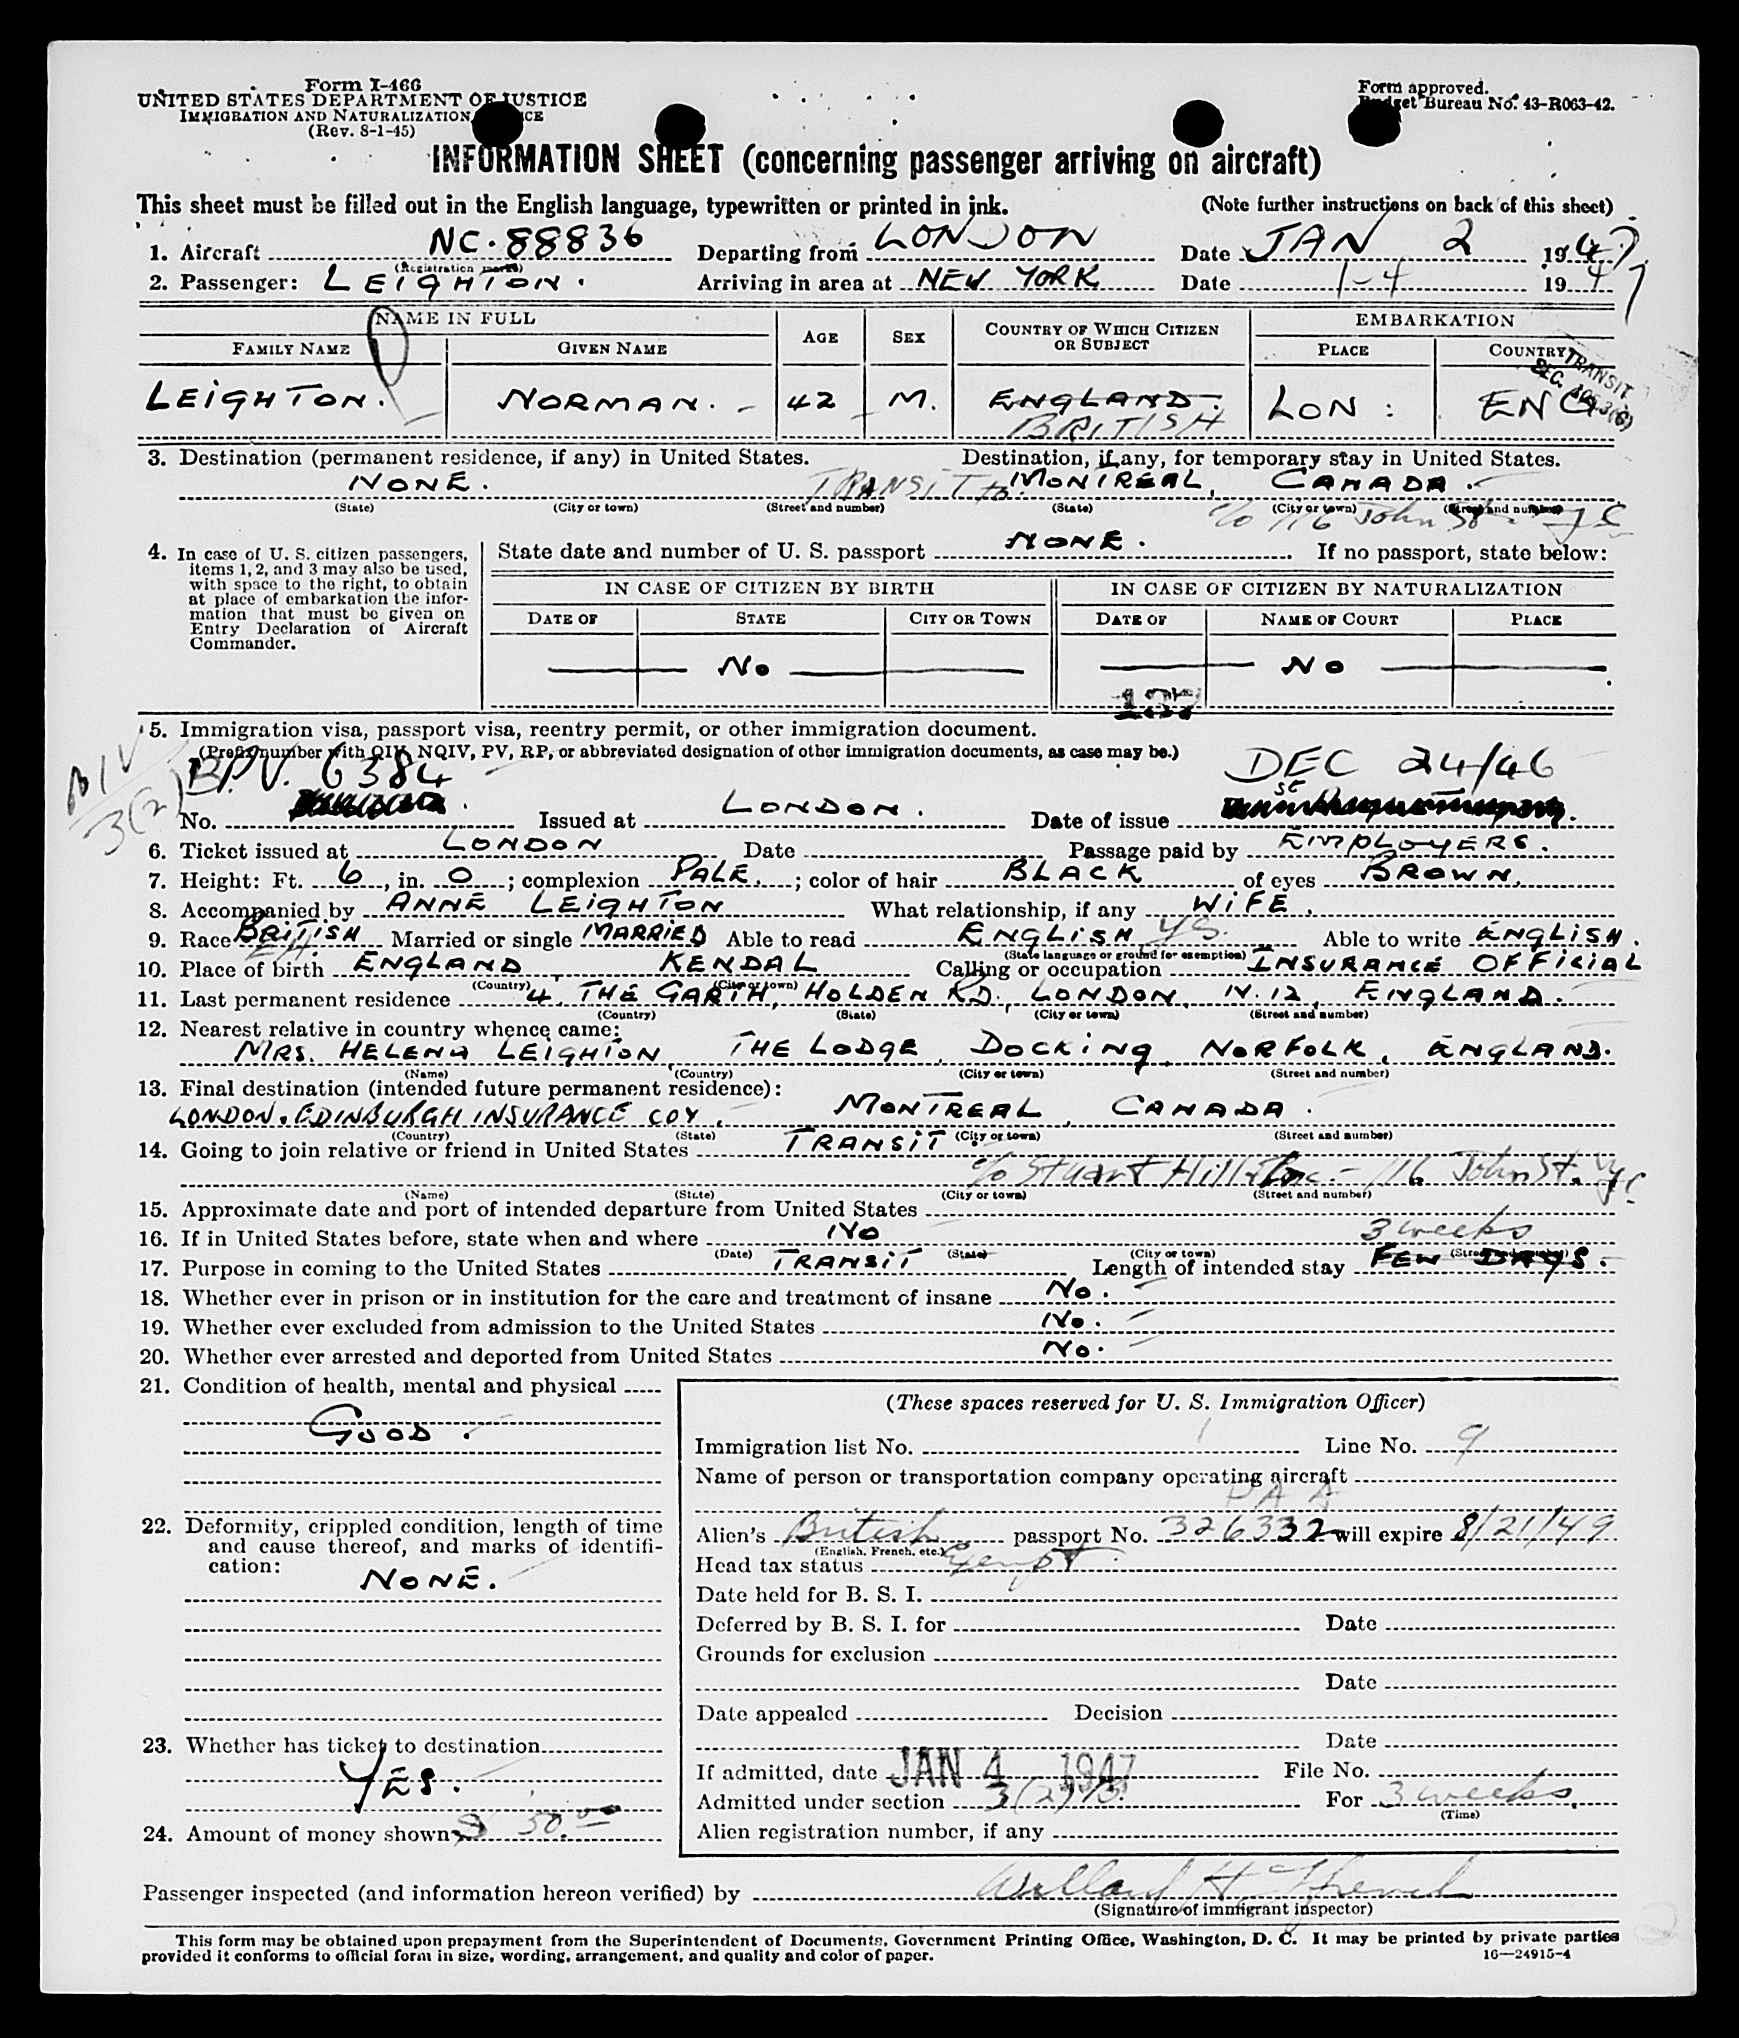 Form I-466
UNITED STATES DEPARTMENT OF JUSTICE
IMMIGRATION AND NATURALIZATION
(Rev. 8-1-45)
Form approved.
Budget Bureau No. 43-R063-42.
INFORMATION SHEET (concerning passenger arriving on aircraft)
This sheet must be filled out in the English language, typewritten or printed in ink. (Note further instructions on back of this sheet)
1. Aircraft NC.88836 Departing from LONDON Date JAN 2 1947
(Registration marks)
2. Passenger: LEIGHTON. Arriving in area at NEW YORK Date 1-4 1947
NAME IN FULL AGE SEX COUNTRY OF WHICH CITIZEN OR SUBJECT EMBARKATION
FAMILY NAME GIVEN NAME PLACE COUNTRY
TRANSIT
LEIGHTON. NORMAN. 42 M. ENGLAND. LON: ENG
BRITISH
3. Destination (permanent residence, if any) in United States. Destination, if any, for temporary stay in United States.
NONE. TRANSIT to MONTREAL, CANADA.
(State) (City or town) (Street and number) (State) (City or town) (Street and number)
c/o 116 John St
4. In case of U. S. citizen passengers, items 1, 2, and 3 may also be used, with space to the right, to obtain at place of embarkation the information that must be given on Entry Declaration of Aircraft Commander.
State date and number of U. S. passport NONE. If no passport, state below:
IN CASE OF CITIZEN BY BIRTH IN CASE OF CITIZEN BY NATURALIZATION
DATE OF STATE CITY OR TOWN DATE OF NAME OF COURT PLACE
No No
5. Immigration visa, passport visa, reentry permit, or other immigration document.
(Prefix number with QIV, NQIV, PV, RP, or abbreviated designation of other immigration documents, as case may be.)
B.P.V. 6384 DEC 24/46
BIV
3(2)
No. Issued at LONDON. Date of issue
6. Ticket issued at LONDON Date Passage paid by EMPLOYERS.
7. Height: Ft. 6, in. 0; complexion PALE.; color of hair BLACK of eyes BROWN.
8. Accompanied by ANNE LEIGHTON What relationship, if any WIFE.
9. Race BRITISH Married or single MARRIED Able to read ENGLISH Able to write ENGLISH.
(State language or ground for exemption)
10. Place of birth ENGLAND, KENDAL Calling or occupation INSURANCE OFFICIAL
(Country) (City or town)
11. Last permanent residence 4, THE GARTH, HOLDEN RD., LONDON, N.12, ENGLAND.
(Country) (State) (City or town) (Street and number)
12. Nearest relative in country whence came:
MRS. HELENA LEIGHTON THE LODGE, DOCKING, NORFOLK, ENGLAND.
(Name) (Country) (City or town) (Street and number)
13. Final destination (intended future permanent residence):
LONDON & EDINBURGH INSURANCE COY, MONTREAL, CANADA.
(Country) (State) (City or town) (Street and number)
14. Going to join relative or friend in United States TRANSIT
c/o Stuart Hill Inc - 116 John St. NYC
(Name) (State) (City or town) (Street and number)
15. Approximate date and port of intended departure from United States
16. If in United States before, state when and where NO 3 weeks
(Date) (State) (City or town) (Street and number)
17. Purpose in coming to the United States TRANSIT Length of intended stay FEW DAYS.
18. Whether ever in prison or in institution for the care and treatment of insane No.
19. Whether ever excluded from admission to the United States No.
20. Whether ever arrested and deported from United States No.
21. Condition of health, mental and physical
GOOD.
22. Deformity, crippled condition, length of time and cause thereof, and marks of identification:
NONE.
23. Whether has ticket to destination
YES.
24. Amount of money shown $ 50.00
(These spaces reserved for U. S. Immigration Officer)
Immigration list No. 1 Line No. 9
Name of person or transportation company operating aircraft
PAA
Alien's British passport No. 326332 will expire 8/21/49
(English, French, etc.)
Head tax status Exempt
Date held for B. S. I.
Deferred by B. S. I. for Date
Grounds for exclusion
Date
Date appealed Decision
Date
If admitted, date JAN 4 1947 File No.
Admitted under section 3(2) B. For 3 weeks.
(Time)
Alien registration number, if any
Passenger inspected (and information hereon verified) by Willard H
(Signature of immigrant inspector)
This form may be obtained upon prepayment from the Superintendent of Documents, Government Printing Office, Washington, D. C. It may be printed by private parties
provided it conforms to official form in size, wording, arrangement, and quality and color of paper. 16—24915-4